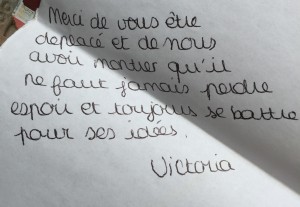 Merci de vous être
deplacé et de nous
avoir montrer qu'il
ne faut jamais perdre
espoir et toujours se battre
pour ses idées.
Victoria